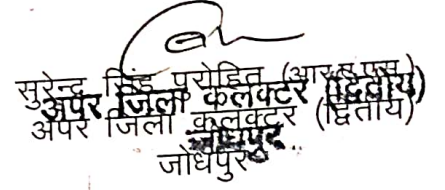 सुरेन्द्र सिंह पुरोहित (आर.ए.एस.)
अपर जिला कलक्टर (द्वितीय)
अपर जिला कलक्टर (द्वितीय)
जोधपुर
जोधपुर